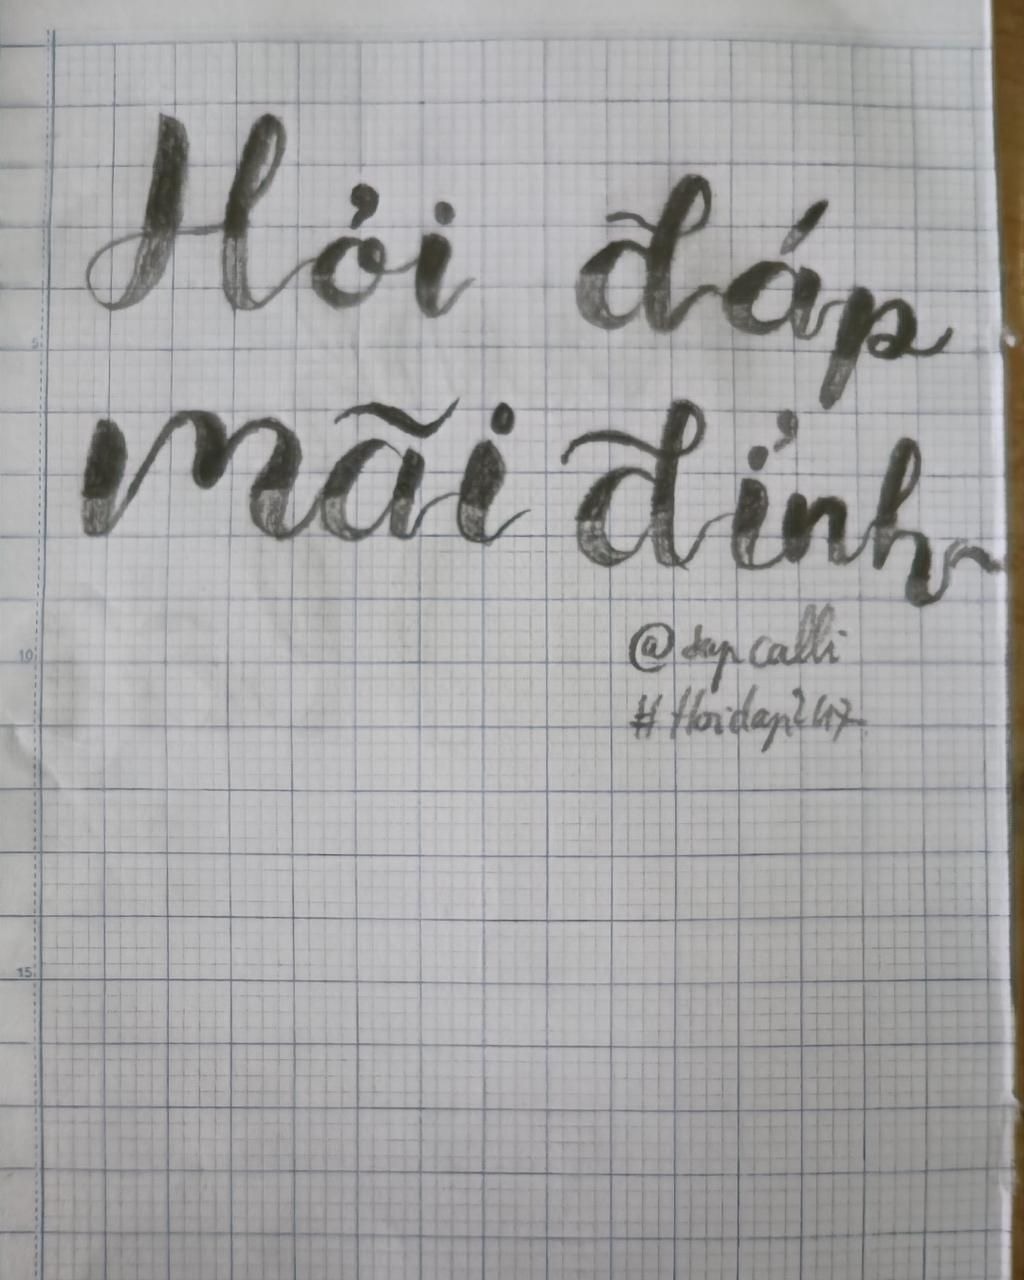 Hỏi đáp
mãi đỉnh
@dapcalli
#Hoidap247
5
10
15